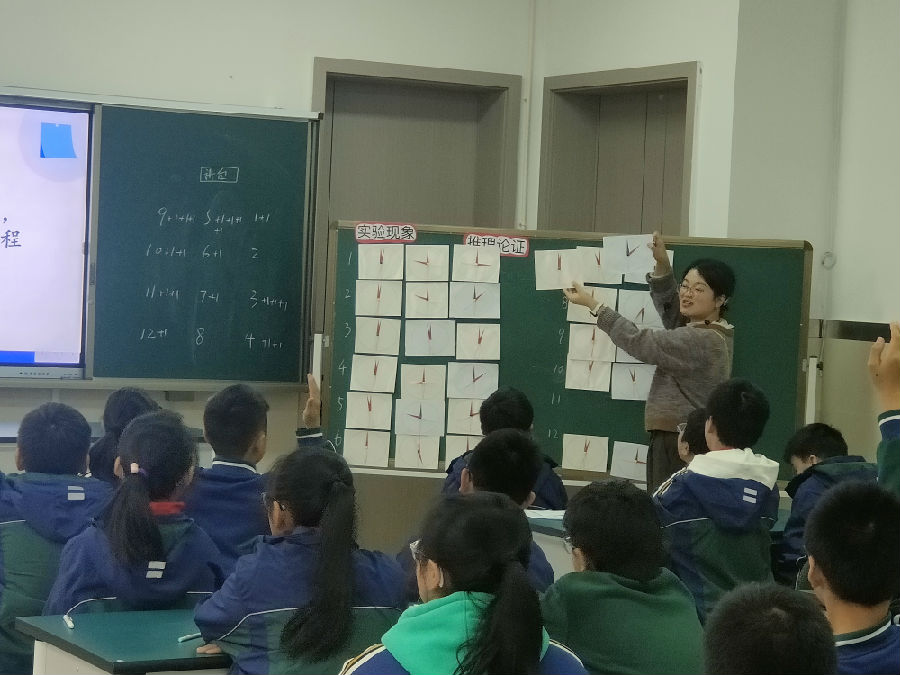 ，
程
讲台
9+1+1+1 5+1+1+1 1+1
+1
10+1+1 6+1 2
11+1+1 7+1 3+1+1+1
12+1 8 4+1+1
实验现象
推理论证
1
2
3
4
5
6
8
9
10
11
12